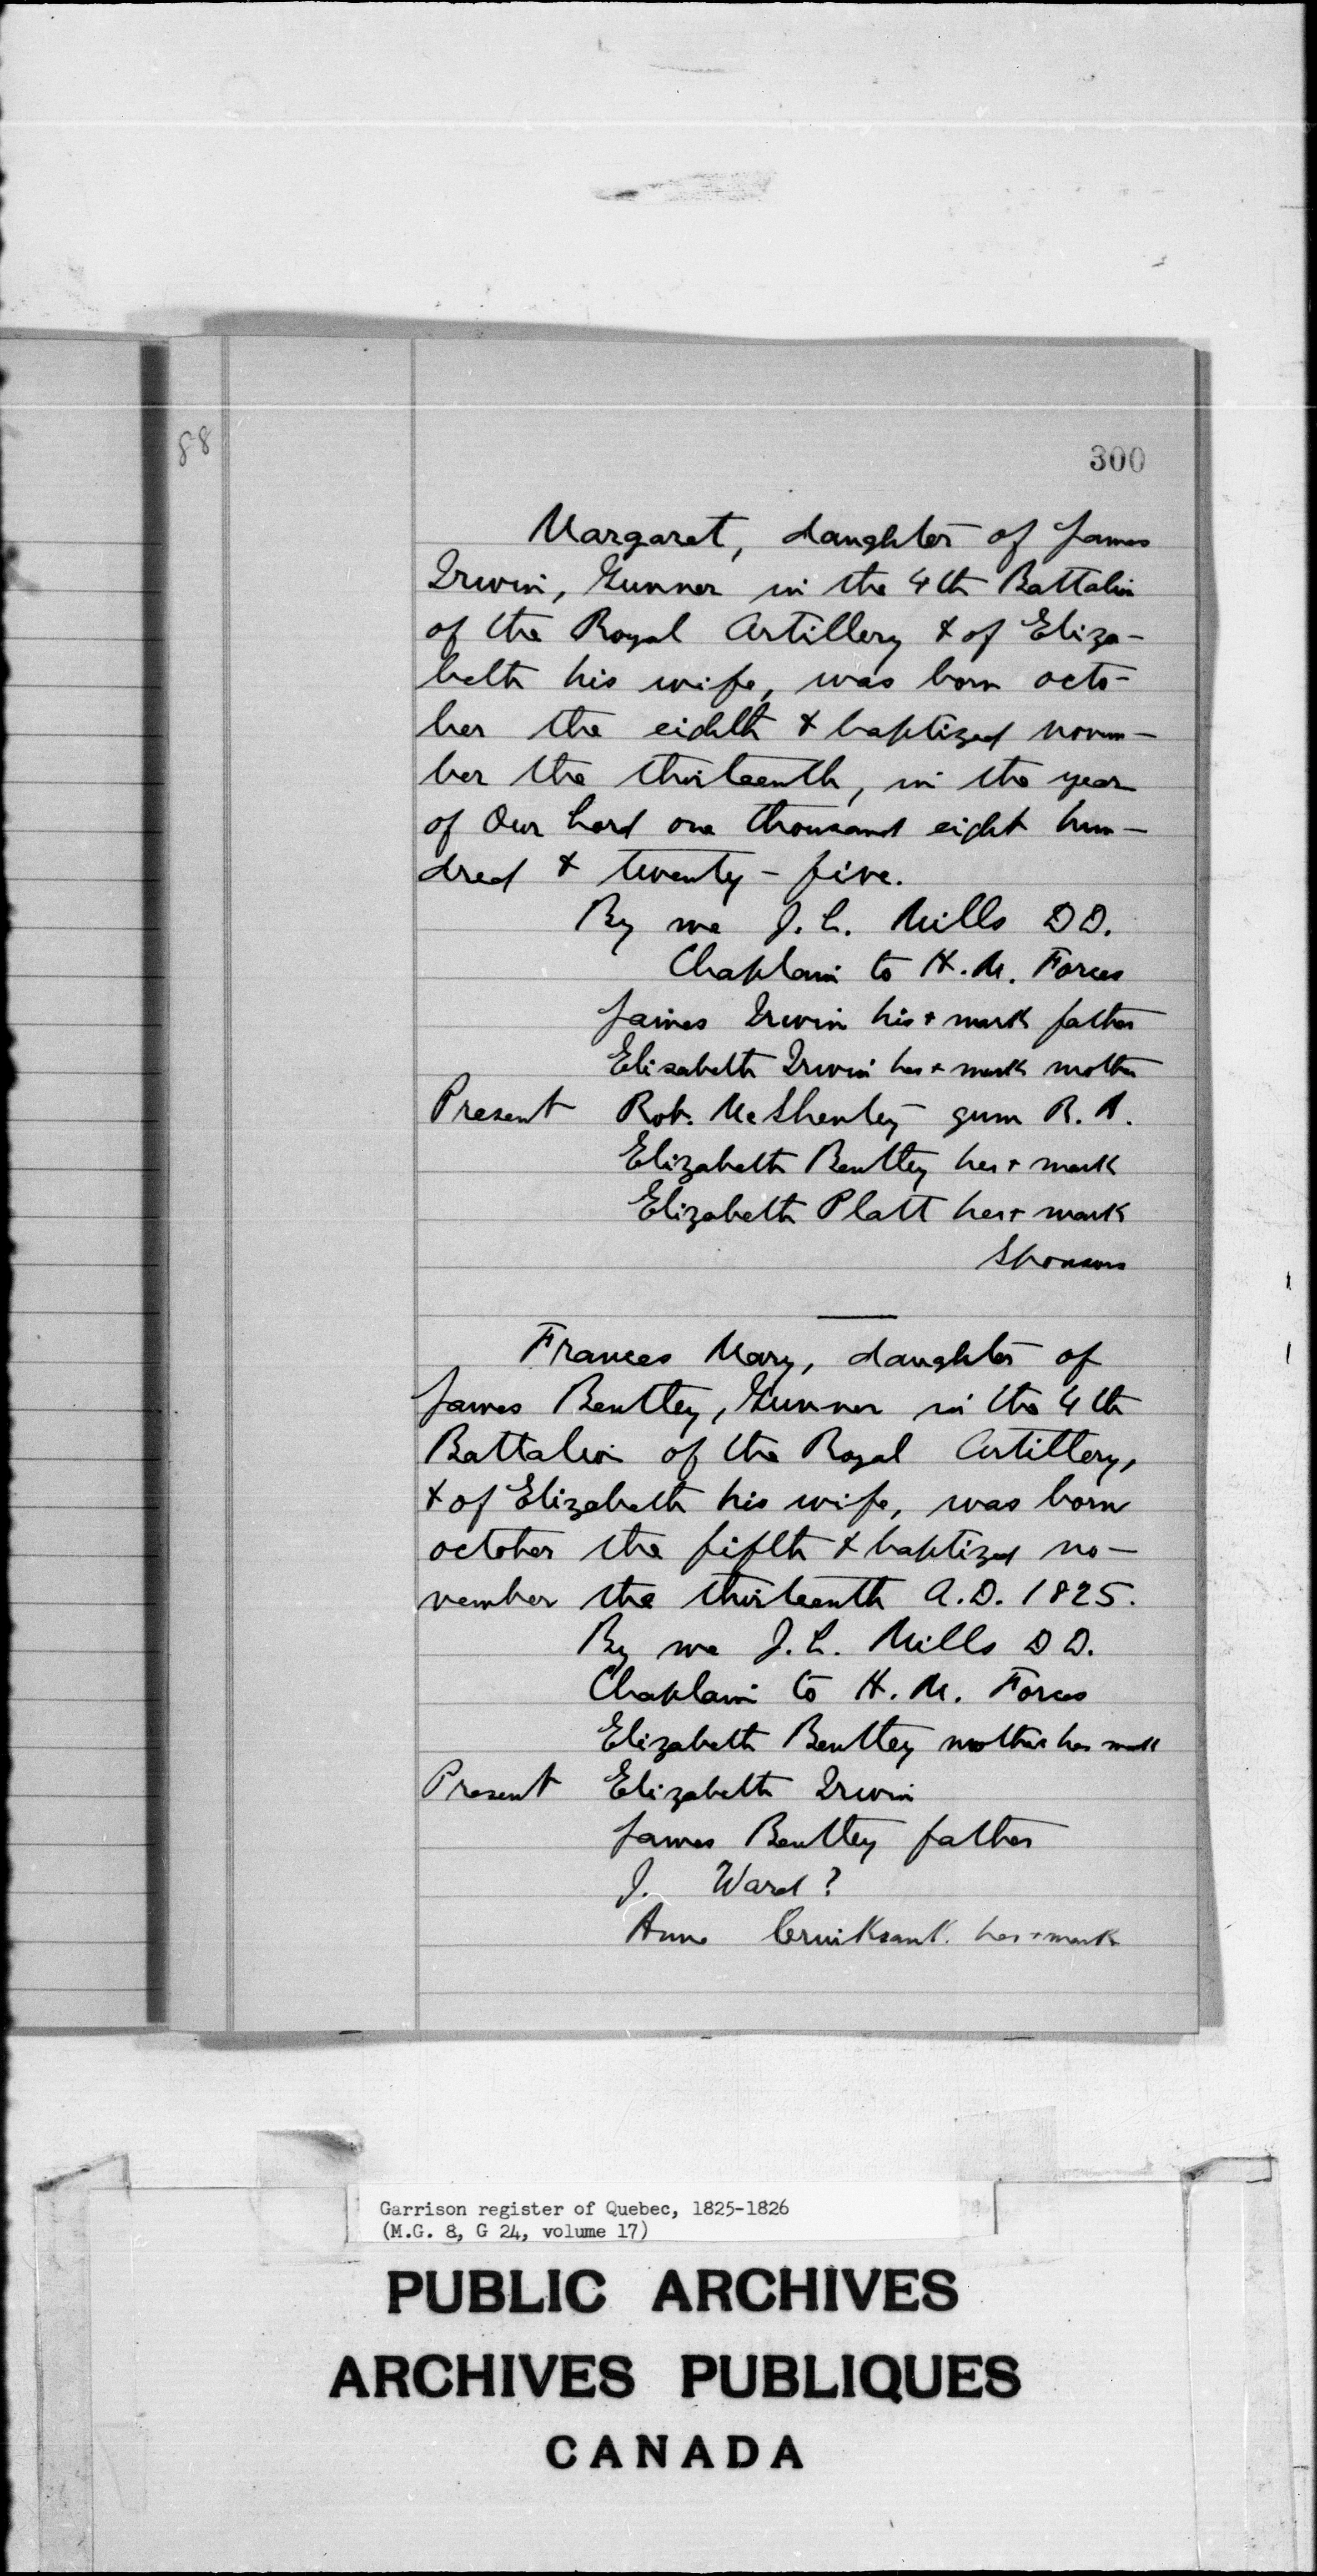 88
300
Margaret, daughter of James
Irwin, Gunner in the 4th Battalion
of the Royal Artillery & of Eliza-
beth his wife, was born octo-
ber the eighth & baptized novem-
ber the thirteenth, in the year
of Our Lord one thousand eight hun-
dred & twenty-five.
By me J. L. Mills DD.
Chaplain to H. M. Forces
James Irwin his + mark father
Elisabeth Irwin her + mark mother
Present Rob. gunn R. A.
Elizabeth Bentley her + mark
Elizabeth Platt her + mark
Sponsors
Frances Mary, daughter of
James Bentley, Gunner in the 4th
Battalion of the Royal Artillery,
& of Elizabeth his wife, was born
october the fifth & baptized no-
vember the thirteenth A.D. 1825.
By me J. L. Mills DD.
Chaplain to H. M. Forces
Elizabeth Bentley mother her mark
Present Elizabeth Irwin
James Bentley father
J. Ward?
Anne her + mark
Garrison register of Quebec, 1825-1826
(M.G. 8, G 24, volume 17)
PUBLIC ARCHIVES
ARCHIVES PUBLIQUES
CANADA